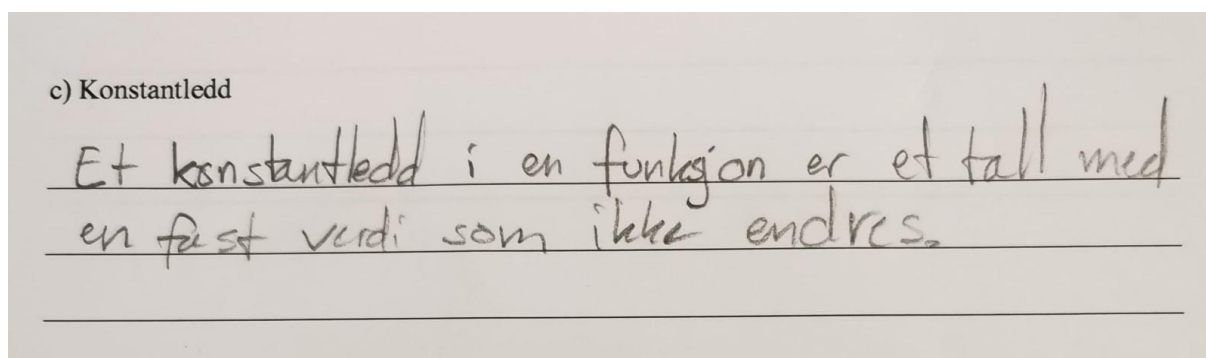 c) Konstantledd
Et konstantledd i en funksjon er et tall med
en fast verdi som ikke endres.